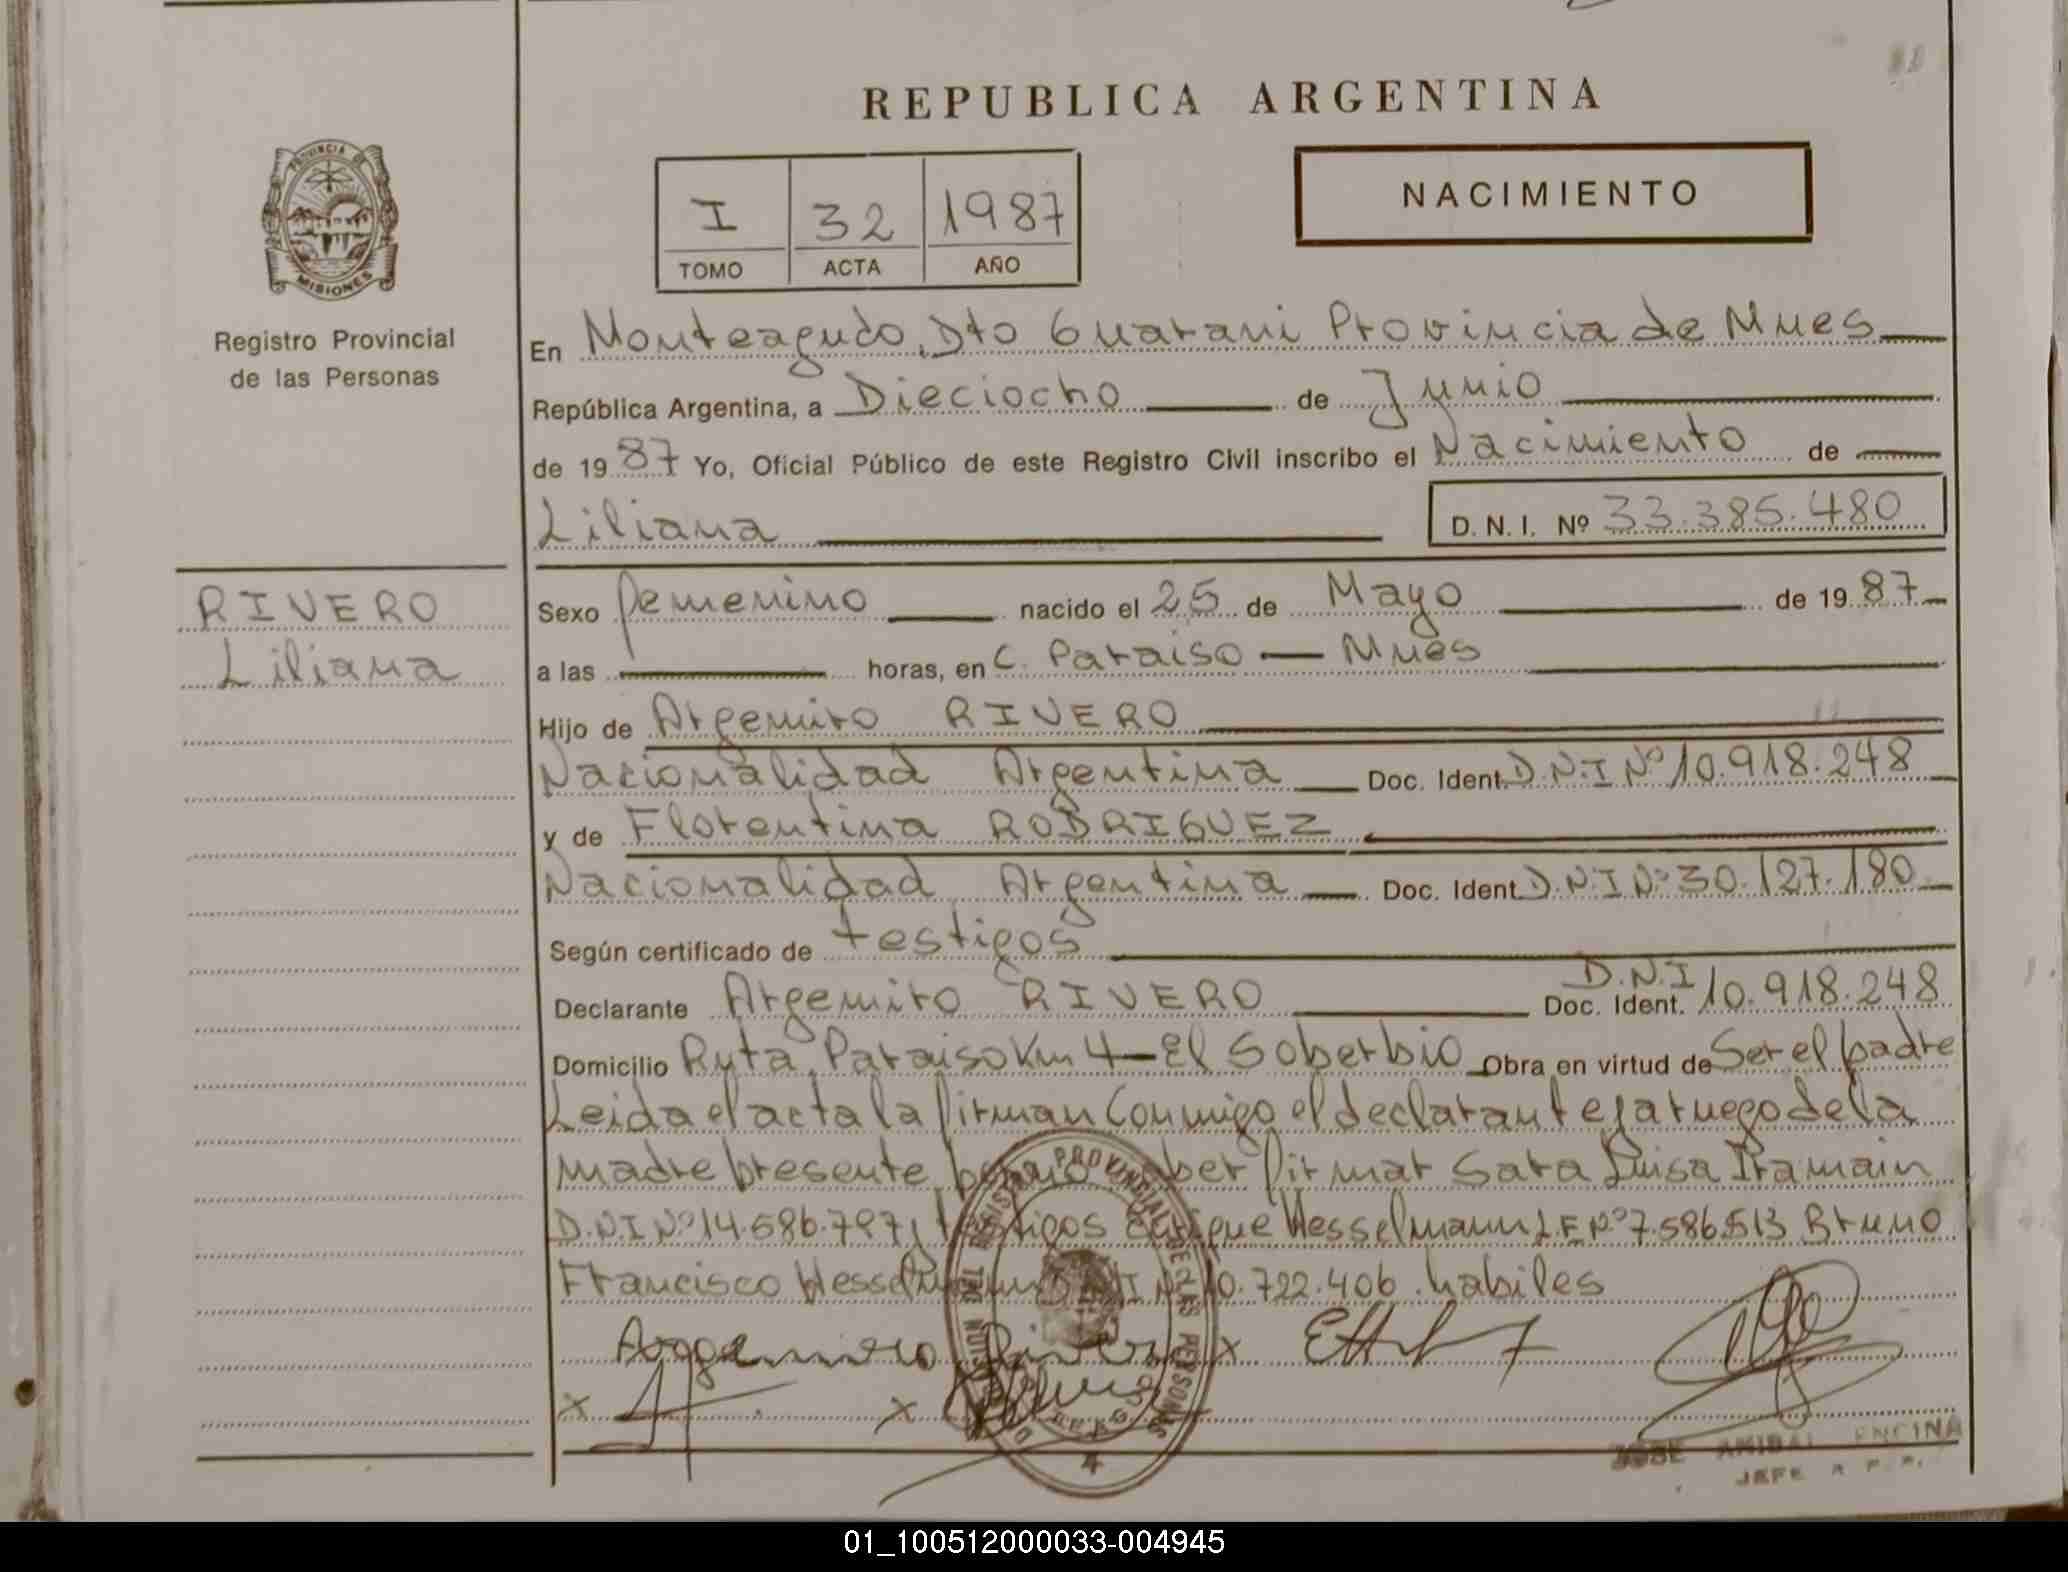 REPUBLICA ARGENTINA
PROVINCIA DE
MISIONES
Registro Provincial
de las Personas
I 32 1987
TOMO ACTA AÑO
NACIMIENTO
En Monteagudo, Dto Guarani Provincia de Mnes
República Argentina, a Dieciocho de Junio
de 1987 Yo, Oficial Público de este Registro Civil inscribo el Nacimiento de
Liliana D. N. I. Nº 33.385.480
RIVERO
Liliana
Sexo femenino nacido el 25 de Mayo de 1987
a las horas, en C. Paraiso — Mnes
Hijo de Argemiro RIVERO
Nacionalidad Argentina Doc. Ident. D.N.I Nº 10.918.248
y de Florentina RODRIGUEZ
Nacionalidad Argentina Doc. Ident. D.N.I Nº 30.127.180
Según certificado de testigos
Declarante Argemiro RIVERO Doc. Ident. D.N.I 10.918.248
Domicilio Ruta Paraiso Km 4 — El Soberbio Obra en virtud de Ser el padre
Leida el acta la firman Conmigo el declarante, a ruego de la
madre presente firmar Sara Luisa Itamain
D.N.I Nº 14.586.797, testigos Enrique Hesselmann L.E Nº 7.586.513 Bruno
Francisco Hesselmann 722.406 habiles
Argemiro Rivero
REGISTRO PROVINCIAL DE LAS PERSONAS
4
JOSE ANIBAL ENCINA
JEFE R P P.
01_100512000033-004945